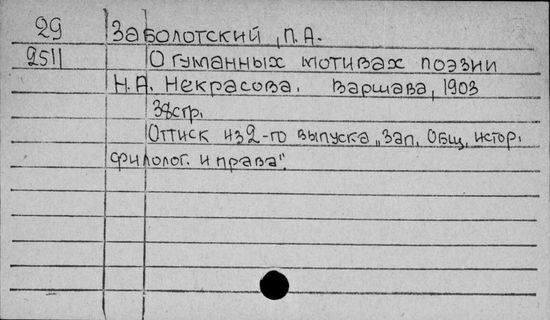 29 Заболотский, П.А.
2511 О гуманных мотивах поэзии
Н.А. Некрасова. Варшава, 1903
38стр.
Оттиск из 2-го выпуска „Зап. Общ. истор.
филолог. и права".